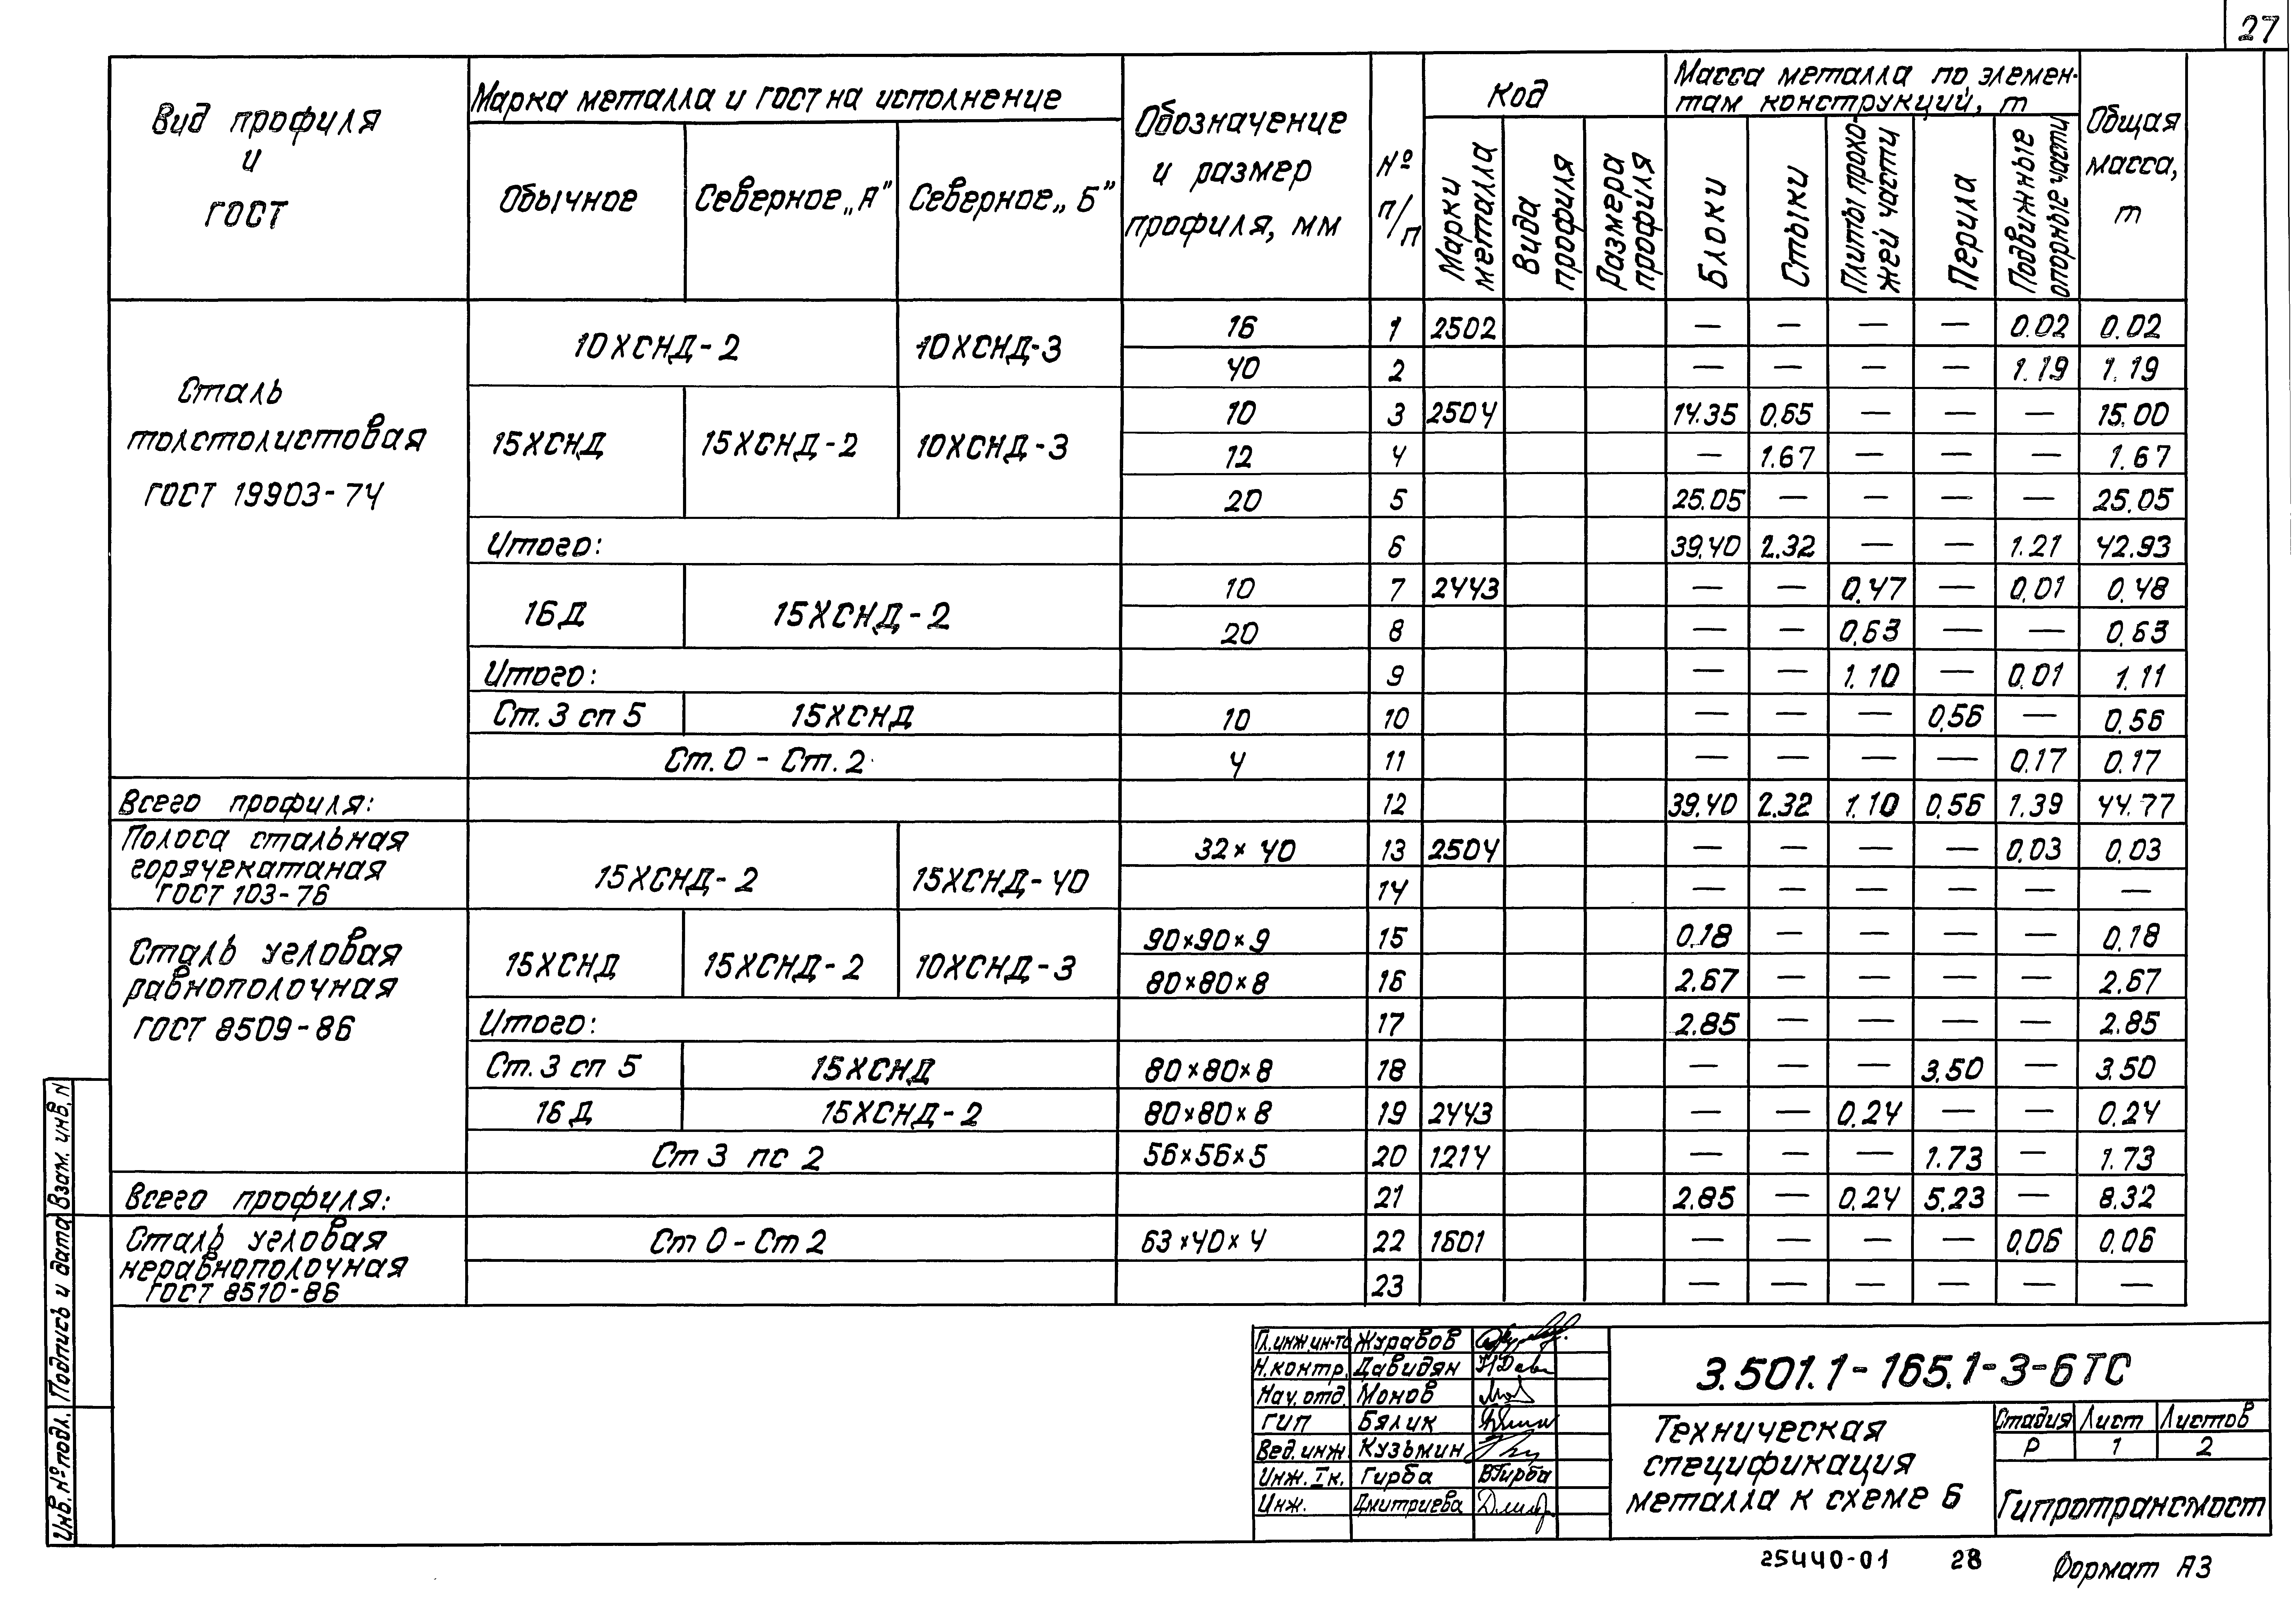 27
Вид профиля и ГОСТ
Марка металла и ГОСТ на исполнение
Обычное
Северное „А”
Северное „Б”
Обозначение и размер профиля, мм
№ п/п
Код
Марки металла
Вида профиля
Размера профиля
Масса металла по элемен-
там конструкций, т
Блоки
Стыки
Плиты проезжей части
Перила
Подвижные опорные части
Общая масса, т
Сталь толстолистовая ГОСТ 19903-74
10ХСНД-2 10ХСНД-3 16 1 2502 — — — — 0.02 0.02
40 2 — — — — 1.19 1.19
15ХСНД 15ХСНД-2 10ХСНД-3 10 3 2504 14.35 0,65 — — — 15.00
12 4 — 1.67 — — — 1.67
20 5 25.05 — — — — 25.05
Итого: 6 39.40 2.32 — — 1.21 42.93
16Д 15ХСНД-2 10 7 2443 — — 0.47 — 0,01 0.48
20 8 — — 0,63 — — 0.63
Итого: 9 — — 1.10 — 0.01 1.11
Ст.3 сп 5 15ХСНД 10 10 — — — 0,56 — 0.56
Ст.0 - Ст.2 4 11 — — — — 0.17 0.17
Всего профиля: 12 39.40 2.32 1.10 0,56 1.39 44.77
Полоса стальная горячекатаная ГОСТ 103-76
15ХСНД-2 15ХСНД-40 32×40 13 2504 — — — — 0.03 0.03
14 — — — — — —
Сталь угловая равнополочная ГОСТ 8509-86
15ХСНД 15ХСНД-2 10ХСНД-3 90×90×9 15 0.18 — — — — 0.18
80×80×8 16 2.67 — — — — 2.67
Итого: 17 2.85 — — — — 2.85
Ст.3 сп 5 15ХСНД 80×80×8 18 — — — 3.50 — 3.50
16Д 15ХСНД-2 80×80×8 19 2443 — — 0.24 — — 0.24
Ст3 пс 2 56×56×5 20 1214 — — — 1.73 — 1.73
Всего профиля: 21 2.85 — 0.24 5.23 — 8.32
Сталь угловая неравнополочная ГОСТ 8510-86
Ст0-Ст2 63×40×4 22 1601 — — — — 0,06 0.06
23 — — — — — —
Инв. № подл. Подпись и дата Взам. инв. N
Гл.инж.ин-та Журавов
Н.контр. Давидян
Нач.отд. Монов
ГИП Бялик
Вед.инж. Кузьмин
Инж. I к. Гирба ВГирба
Инж. Дмитриева
3.501.1-165.1-3-6ТС
Техническая
спецификация
металла к схеме 6
Стадия Лист Листов
Р 1 2
Гипротрансмост
25440-01 28 Формат А3